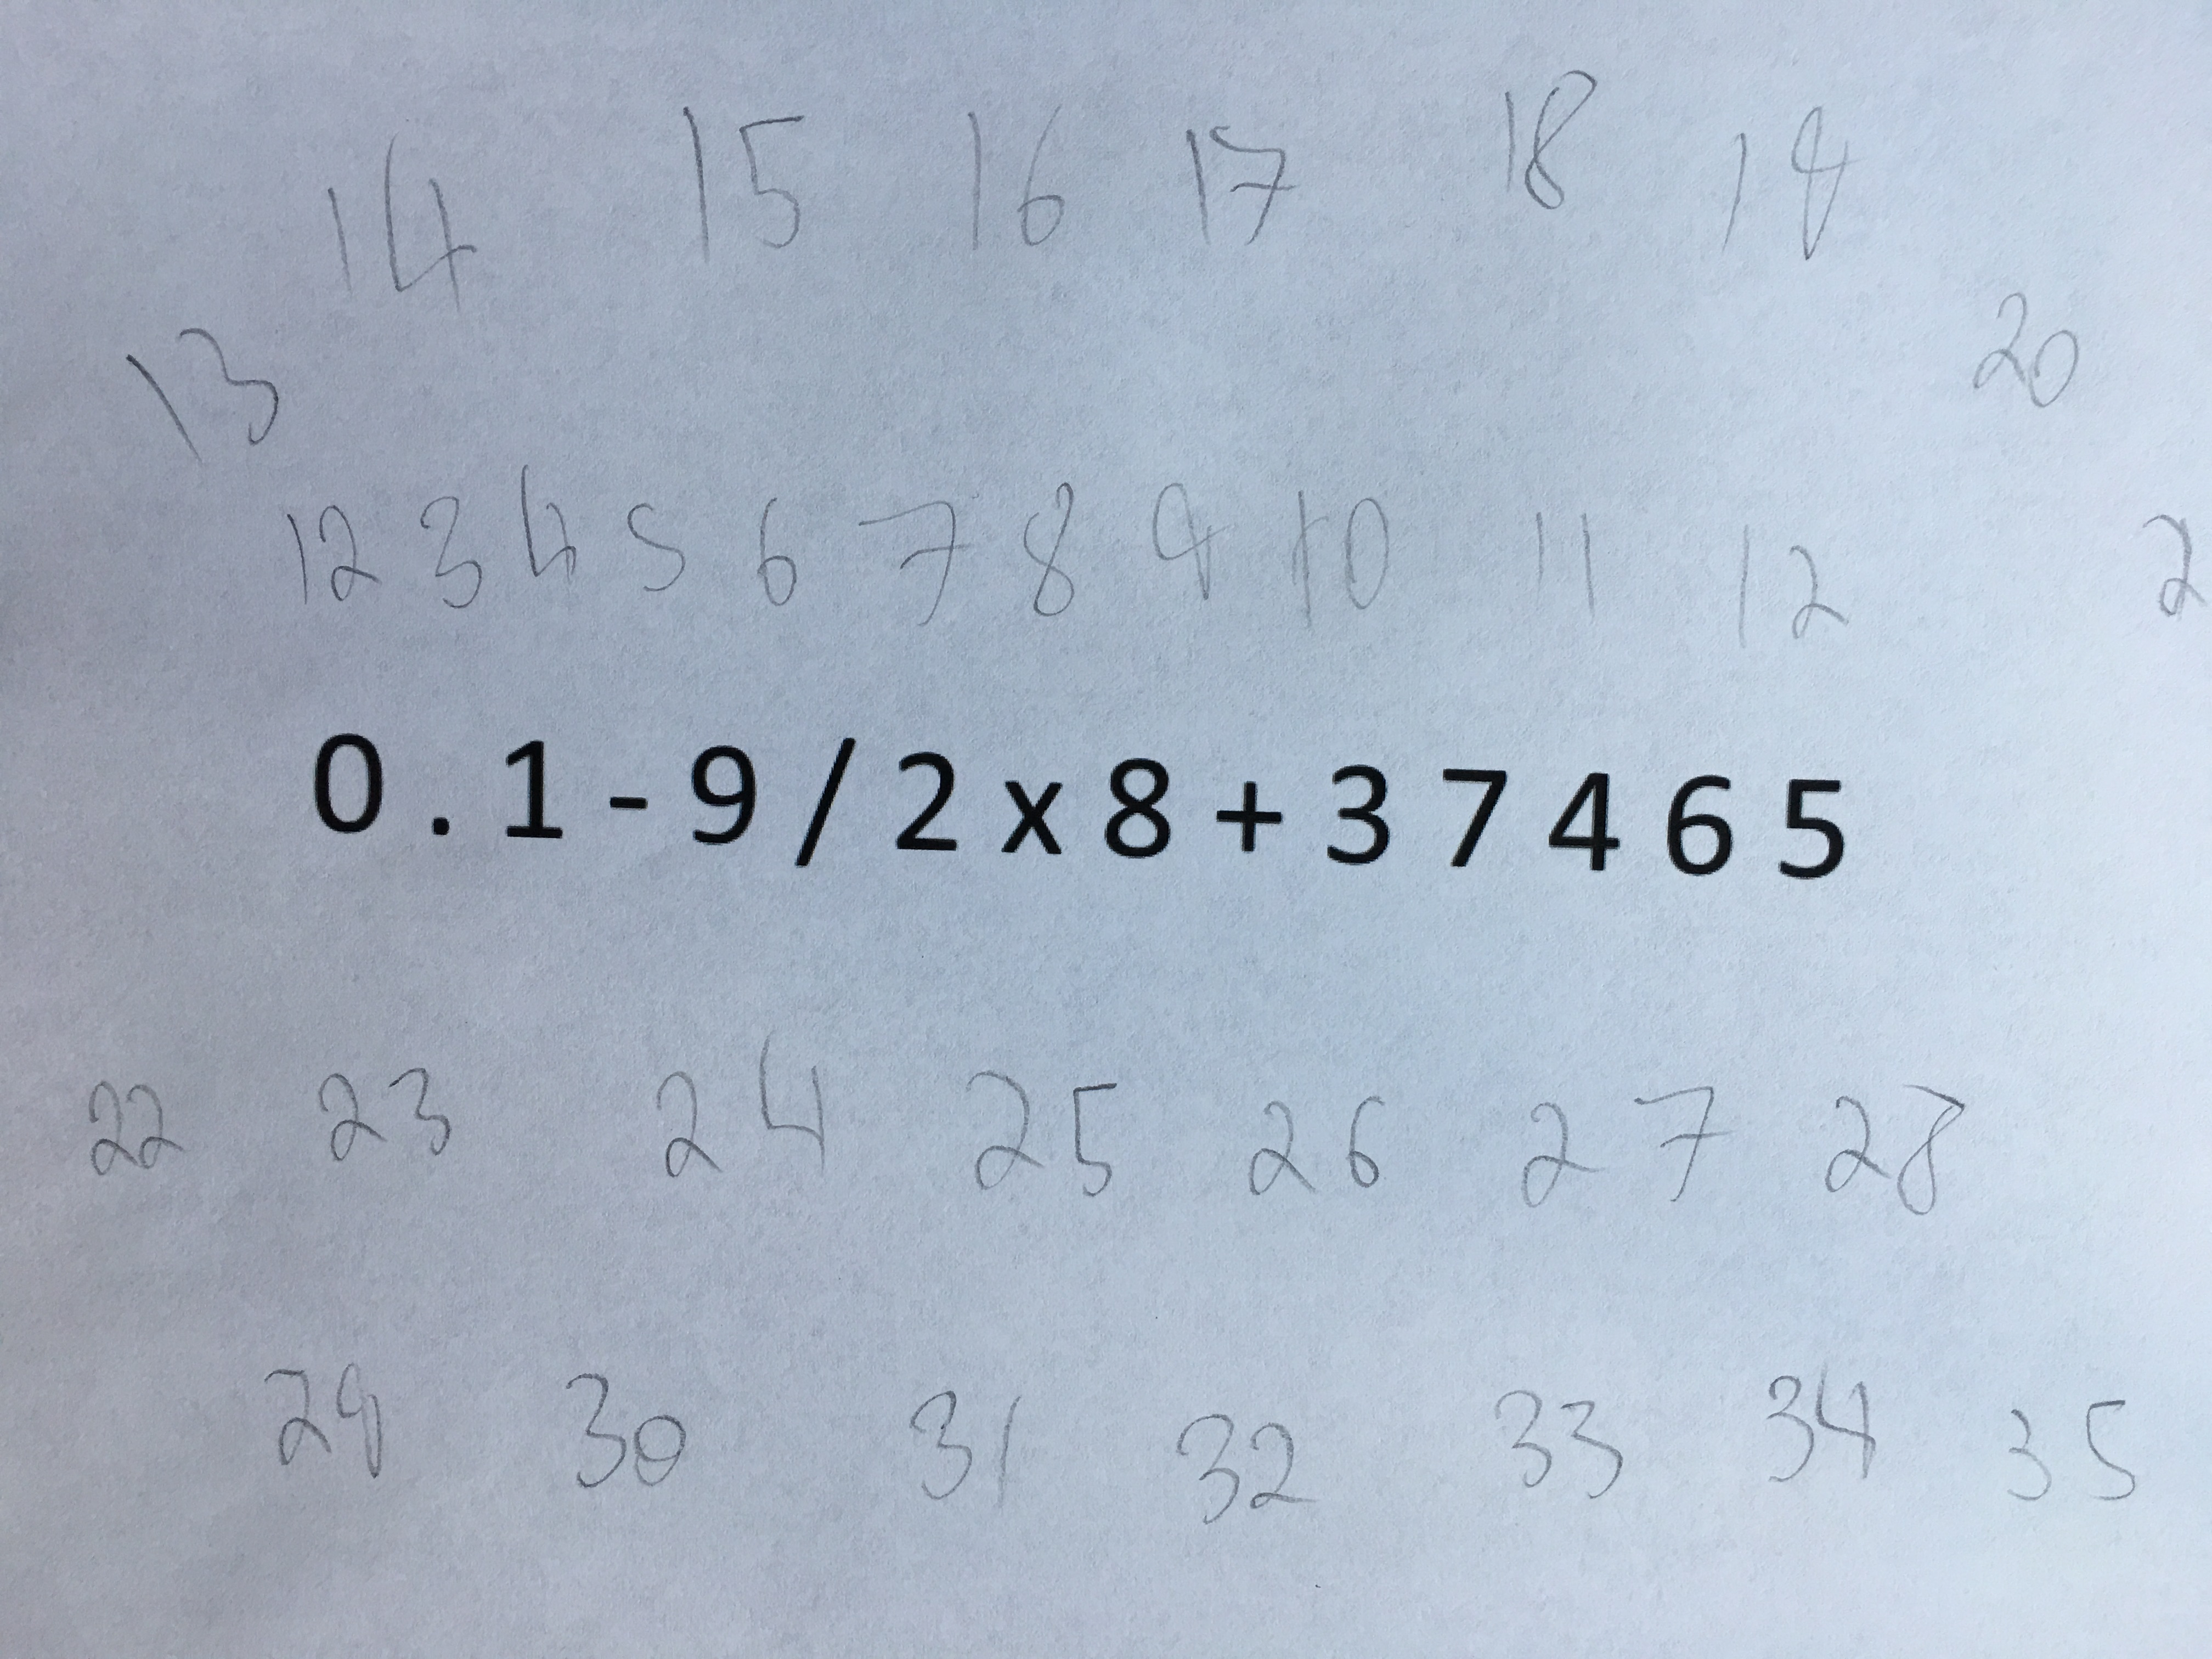 14 15 16 17 18 19
13 20
12 3 4 5 6 7 8 9 10 11 12 2
0.1-9/2x8+37465
22 23 24 25 26 27 28
29 30 31 32 33 34 35